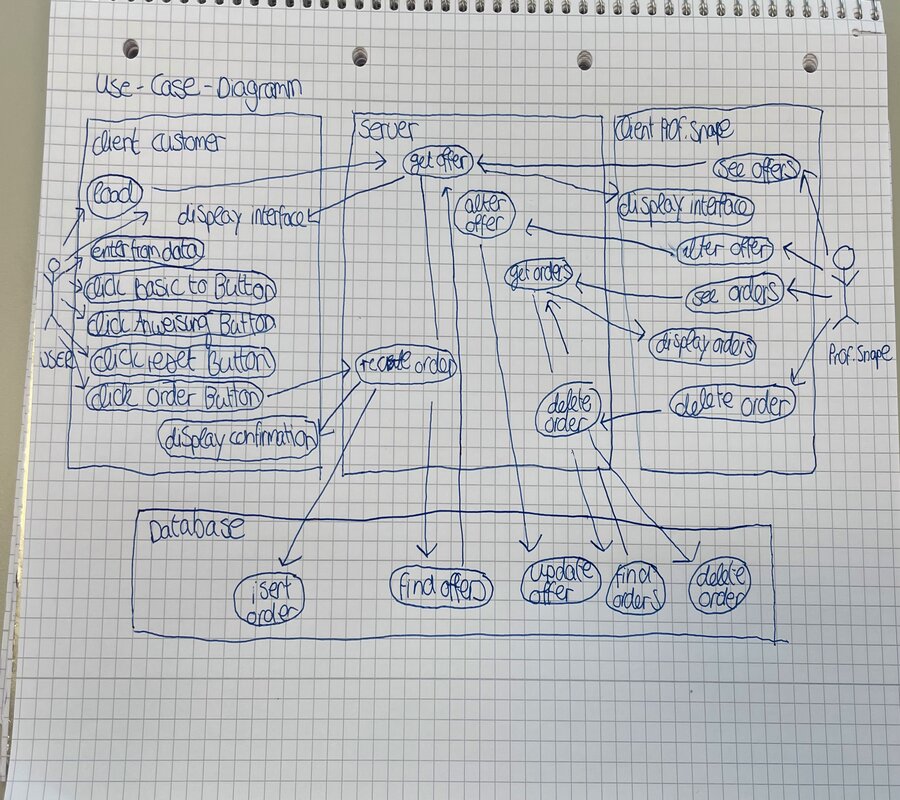 Use-Case-Diagramm
client customer
load
display interface
enter from data
click basic to Button
click Anweisung Button
click reset Button
click order Button
display confirmation
USER
Server
get offer
alter
offer
get orders
order
delete
order
Client Prof. Snape
see offers
display interface
alter offer
see orders
display orders
delete order
Prof. Snape
Database
isert
order
find offers
update
offer
find
orders
delete
order